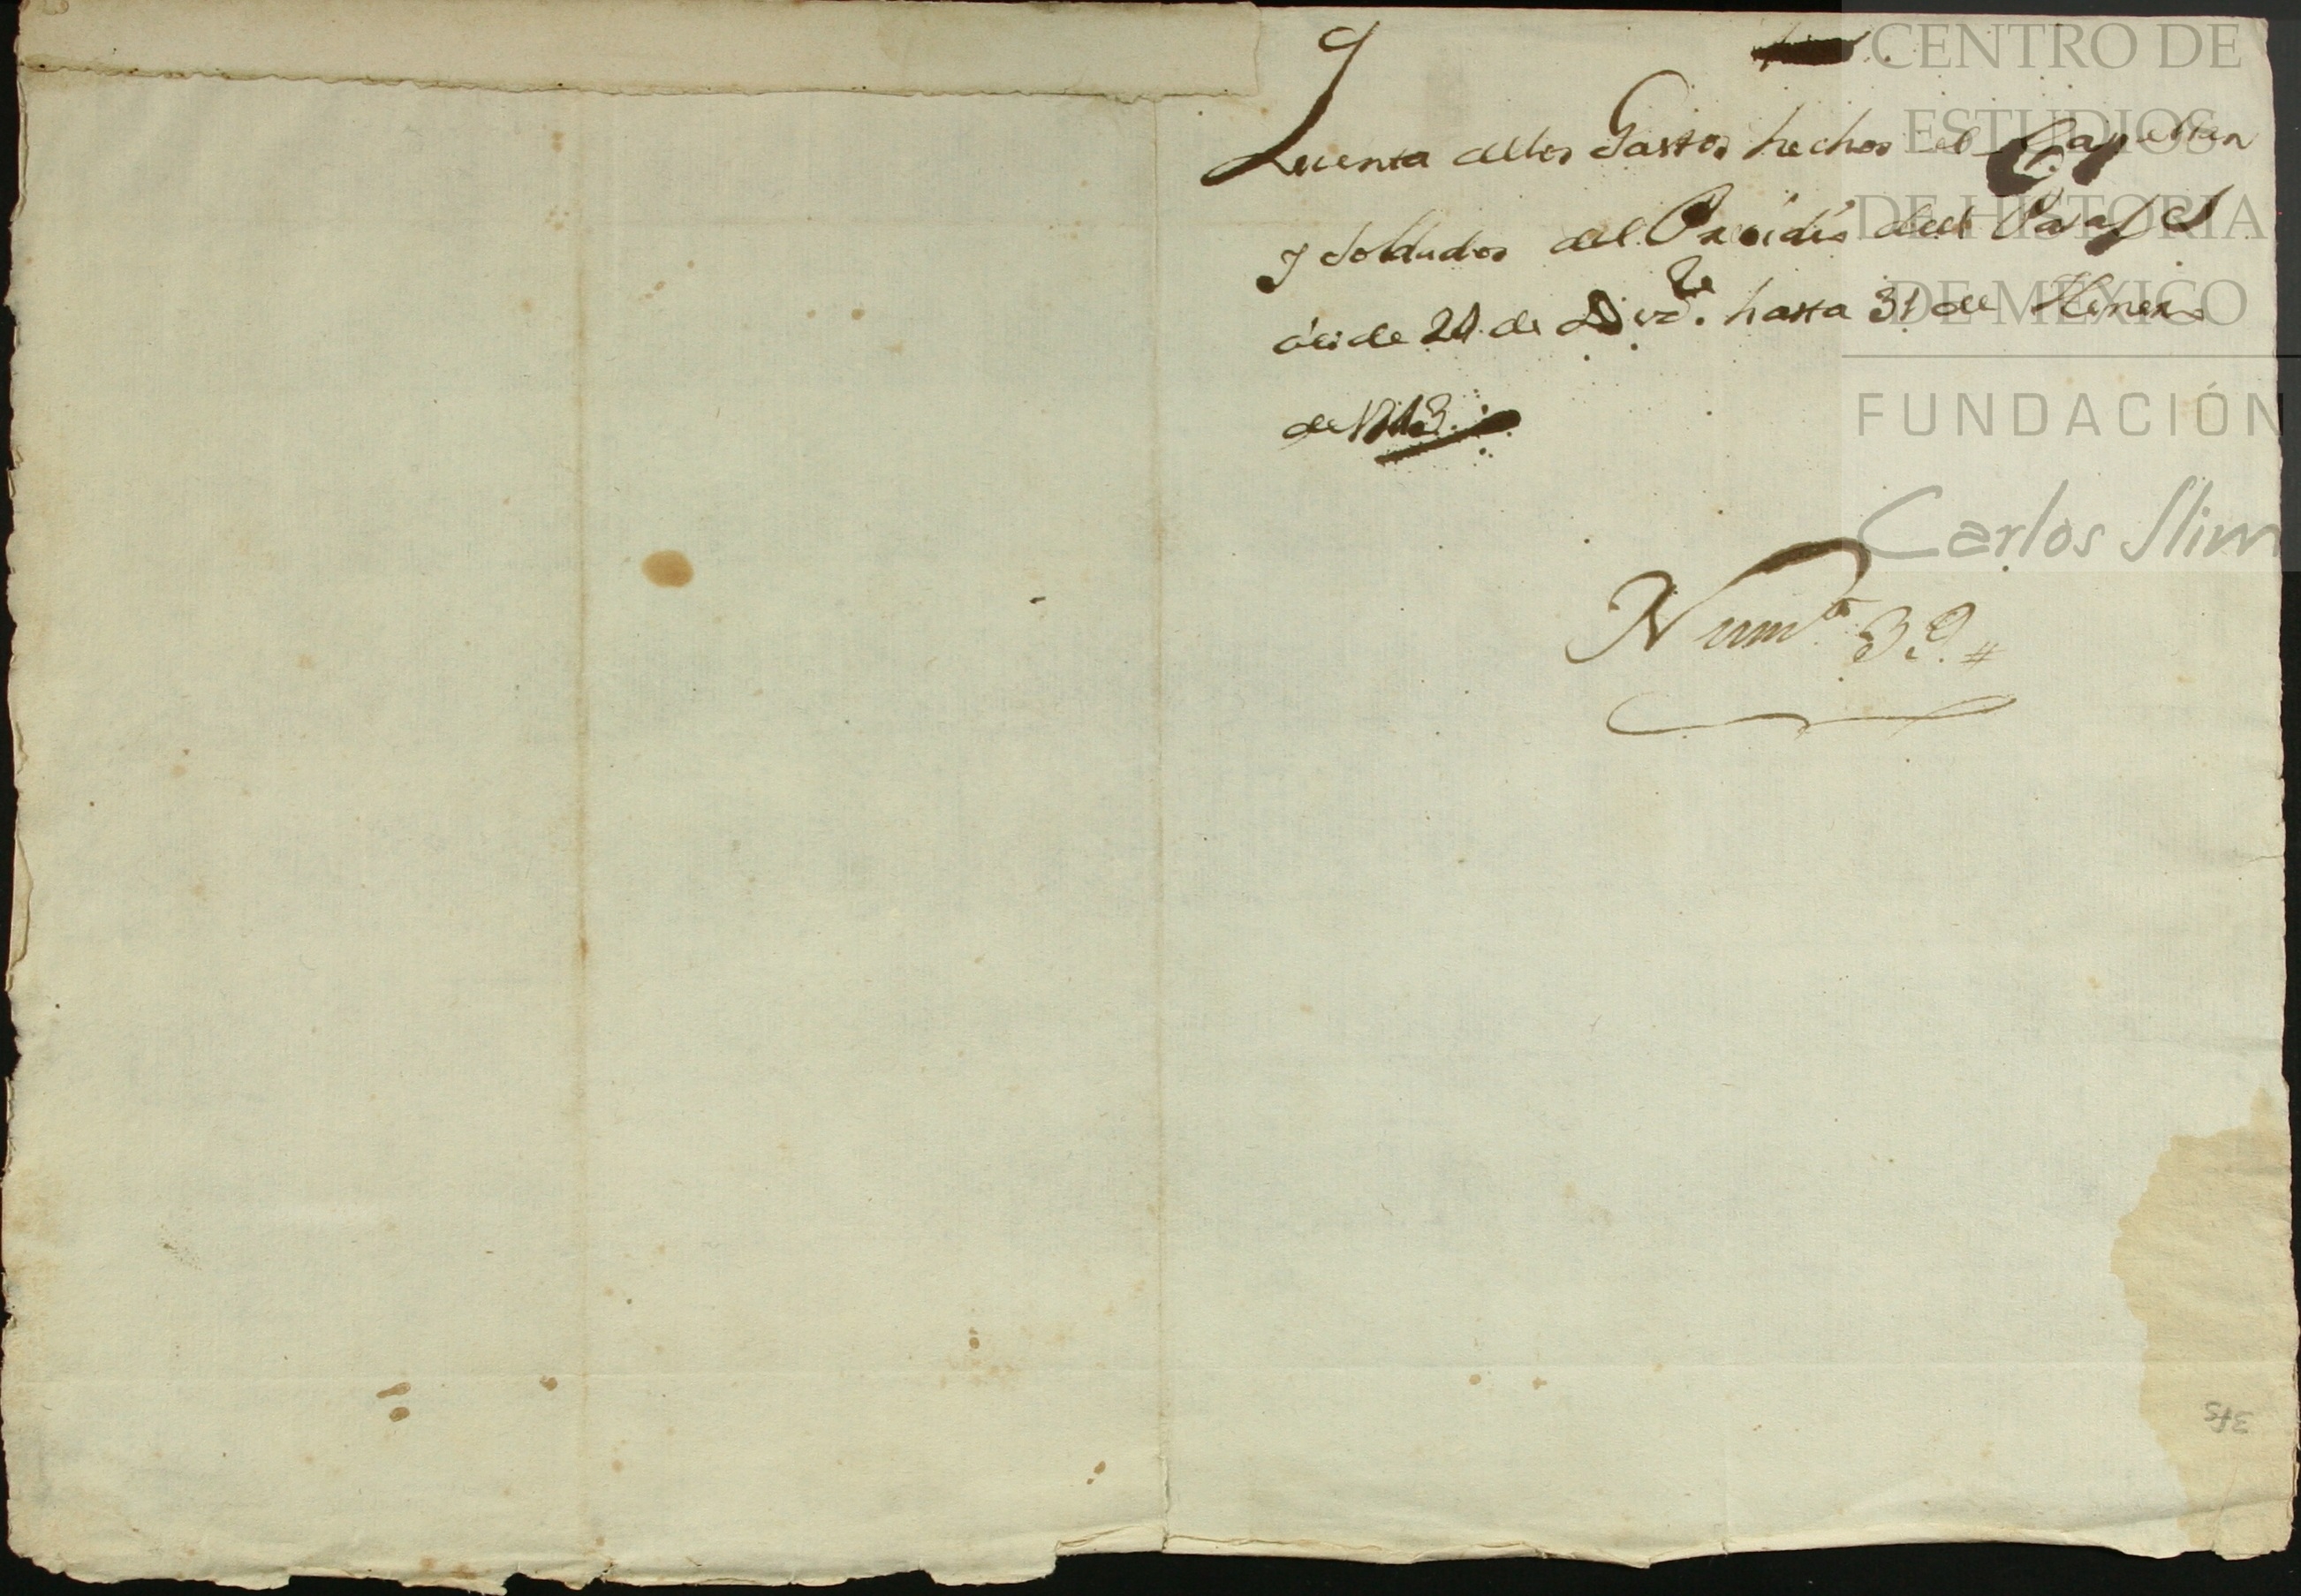 Quenta de los Gastos hechos el Capellan
y Soldados del Presidio del Carasel
desde 21 de Dizre. hasta 31 de Henero
de 1813.
Numo 39.
3fs
CENTRO DE
ESTUDIOS
DE HISTORIA
DE MÉXICO
FUNDACIÓN
Carlos Slim